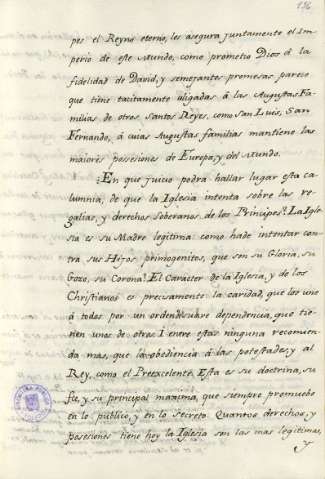 136
pes el Reyno eterno, les asegura juntamente el Im-
perio de este Mundo, como prometio Dios á la
fidelidad de David, y semejantes promesas parece
que tiene tacitamente oligadas á las Augustas Fa-
milias de otros Santos Reyes, como San Luis, San
Fernando, á cuias Augustas familias mantiene las
maiores posesiones de Europa, y del Mundo.
¿En que juicio podrá hallar lugar esta ca-
lumnia, de que la Iglesia intenta sobre las re-
galias, y derechos Soberanos de los Principes? La Igle-
sia es su Madre legitima: como hade intentar con-
tra sus Hijos primogenitos, que son su Gloria, su
Gozo, su Corona? El Caracter de la Iglesia, y de los
Christianos es precisamente la caridad, que los une
á todos por un orden suave dependencia, que tie-
nen unos de otros I entre estas ninguna recomien-
da mas, que la obediencia á las potestades, y al
Rey, como el Preexcelente. Esta es su doctrina, su
fee, y su principal maxima, que siempre promuebe
en lo publico, y en lo Secreto. Quantos derechos, y
posesiones tiene hoy la Iglesia son las mas legitimas,
y